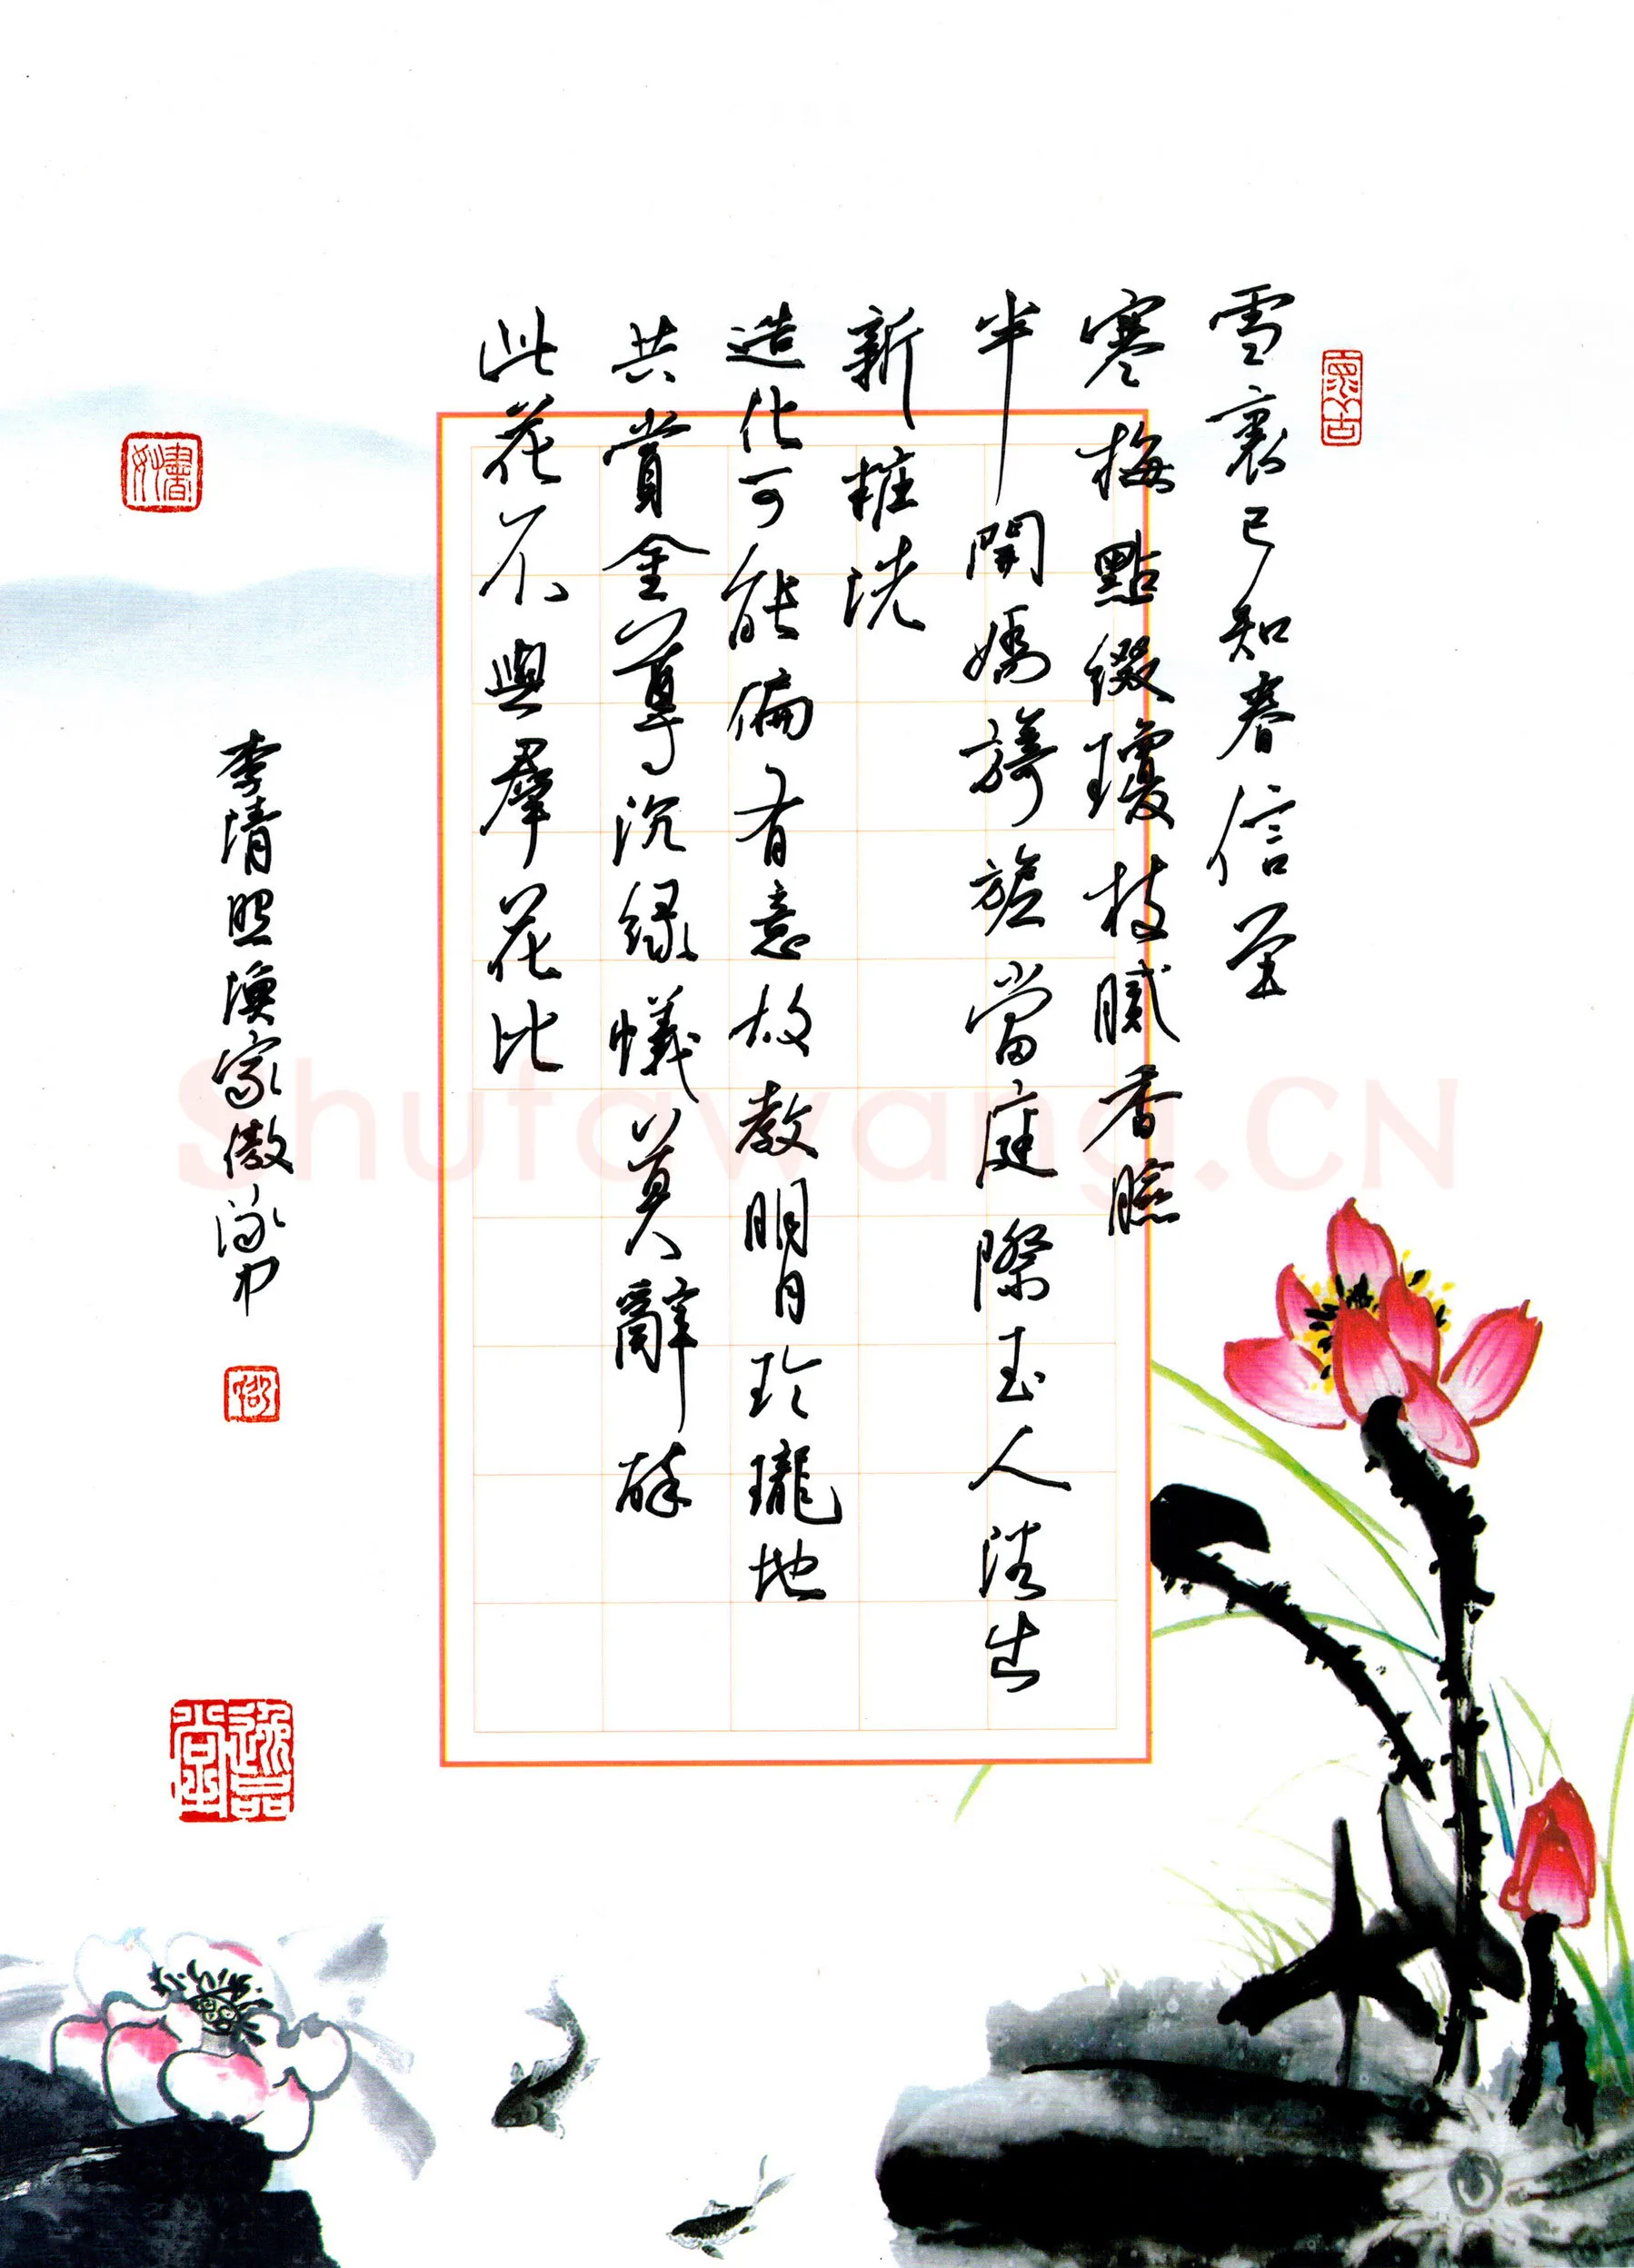 雪裏已知春信至
寒梅點綴瓊枝膩香臉
半開嬌旖旎當庭際玉人浴出
新粧洗
造化可能偏有意故教明月玲瓏地
共賞金尊沉綠蟻莫辭醉
此花不與羣花比
李清照漁家傲
逸品堂
Shufawang.CN